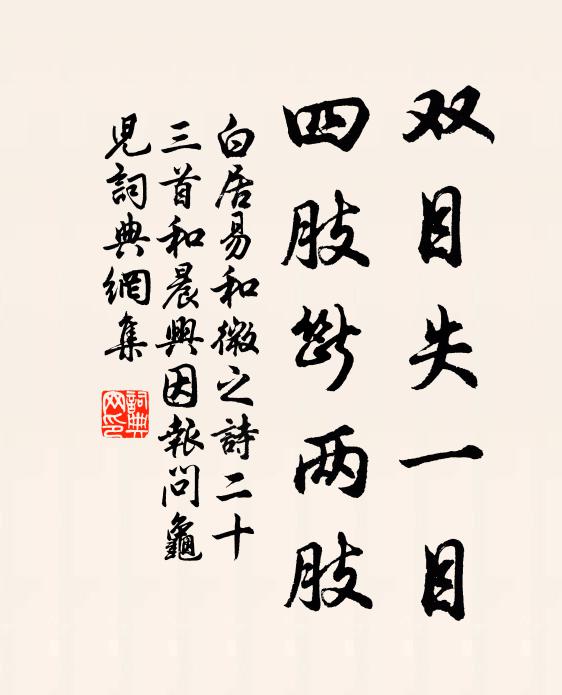 双目失一目
四肢断两肢
白居易和微之詩二十
三首和晨興因報問龜
児詞典網集
詞典
网印